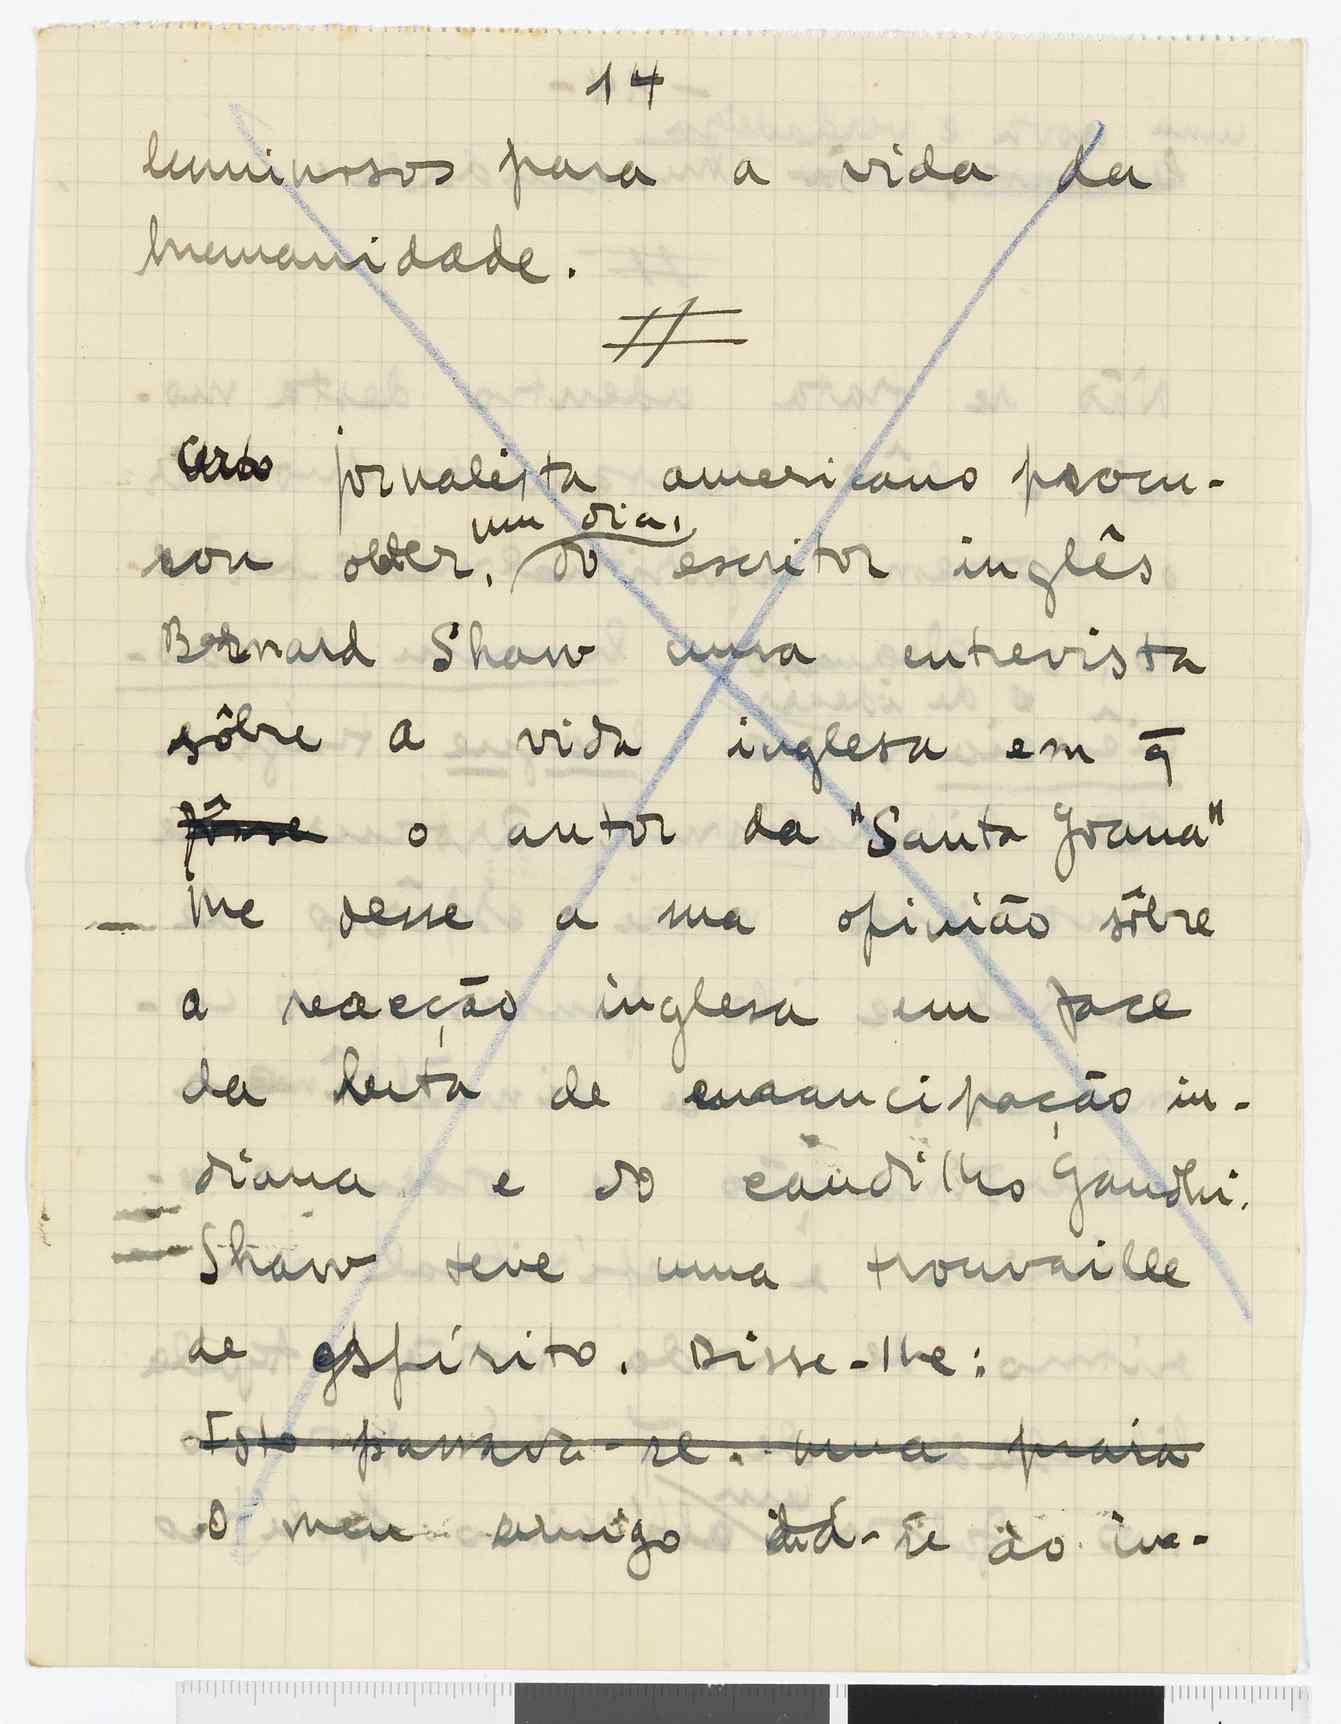 14
luminosos para a vida da
humanidade.
Certo jornalista americano procu-
rou obter, um dia, do escritor inglês
Bernard Shaw uma entrevista
sôbre a vida inglesa em q̄
fôsse o autor da "Santa Joana"
lhe desse a sua opinião sôbre
a reacção inglesa em face
da luta de emancipação in-
diana e do caudilho Gandhi.
Shaw teve uma trouvaille
de espírito. Disse-lhe:
Isto passava-se numa praia
O meu amigo dá-se ao in-